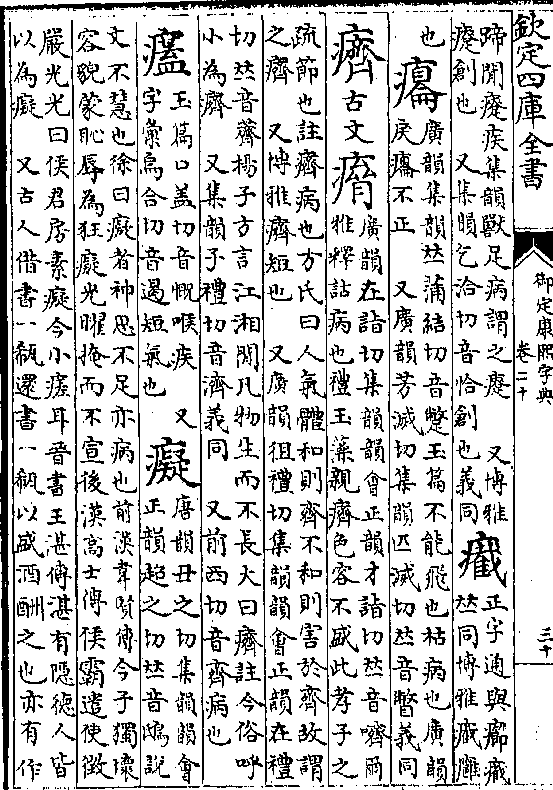 欽定四庫全書
御定康熙字典
卷二十
三十
蹄間瘲疾集韻獸足病謂之瘲 又博雅
瘲創也 又集韻乞洽切音恰創也義同
㿍
正字通與癤㿍
𠀤同博雅㿍雕
也
癟
廣韻集韻𠀤蒲結切音蹩玉篇不能飛也枯病也廣韻
戾癟不正 又廣韻芳滅切集韻匹滅切𠀤音瞥義同
癠
古文
㾕
廣韻在詣切集韻韻會正韻才詣切𠀤音嚌爾
雅釋詁病也禮玉藻親癠色容不盛此孝子之
疏節也註癠病也方氏曰人氣體和則齊不和則害於齊故謂
之癠 又博雅癠短也 又廣韻徂禮切集韻韻會正韻在禮
切𠀤音薺揚子方言江湘間凡物生而不長大曰癠註今俗呼
小為癠 又集韻子禮切音濟義同 又前西切音齊病也
玉篇口盖切音慨喉疾 又
字彙烏合切音遏短氣也
癡
唐韻丑之切集韻韻會
正韻超之切𠀤音鴟說
文不慧也徐曰癡者神思不足亦病也前漢韋賢傳今子獨壞
容貌蒙恥辱為狂癡光曜掩而不宣後漢高士傳侯霸遣使徵
嚴光光曰侯君房素癡今小瘥耳晉書王湛傳湛有隱德人皆
以為癡 又古人借書一瓻還書一瓻以盛酒酬之也亦有作